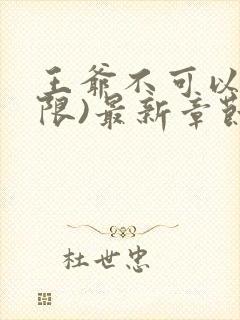 王爷不可以
限)最新章节
杜世忠